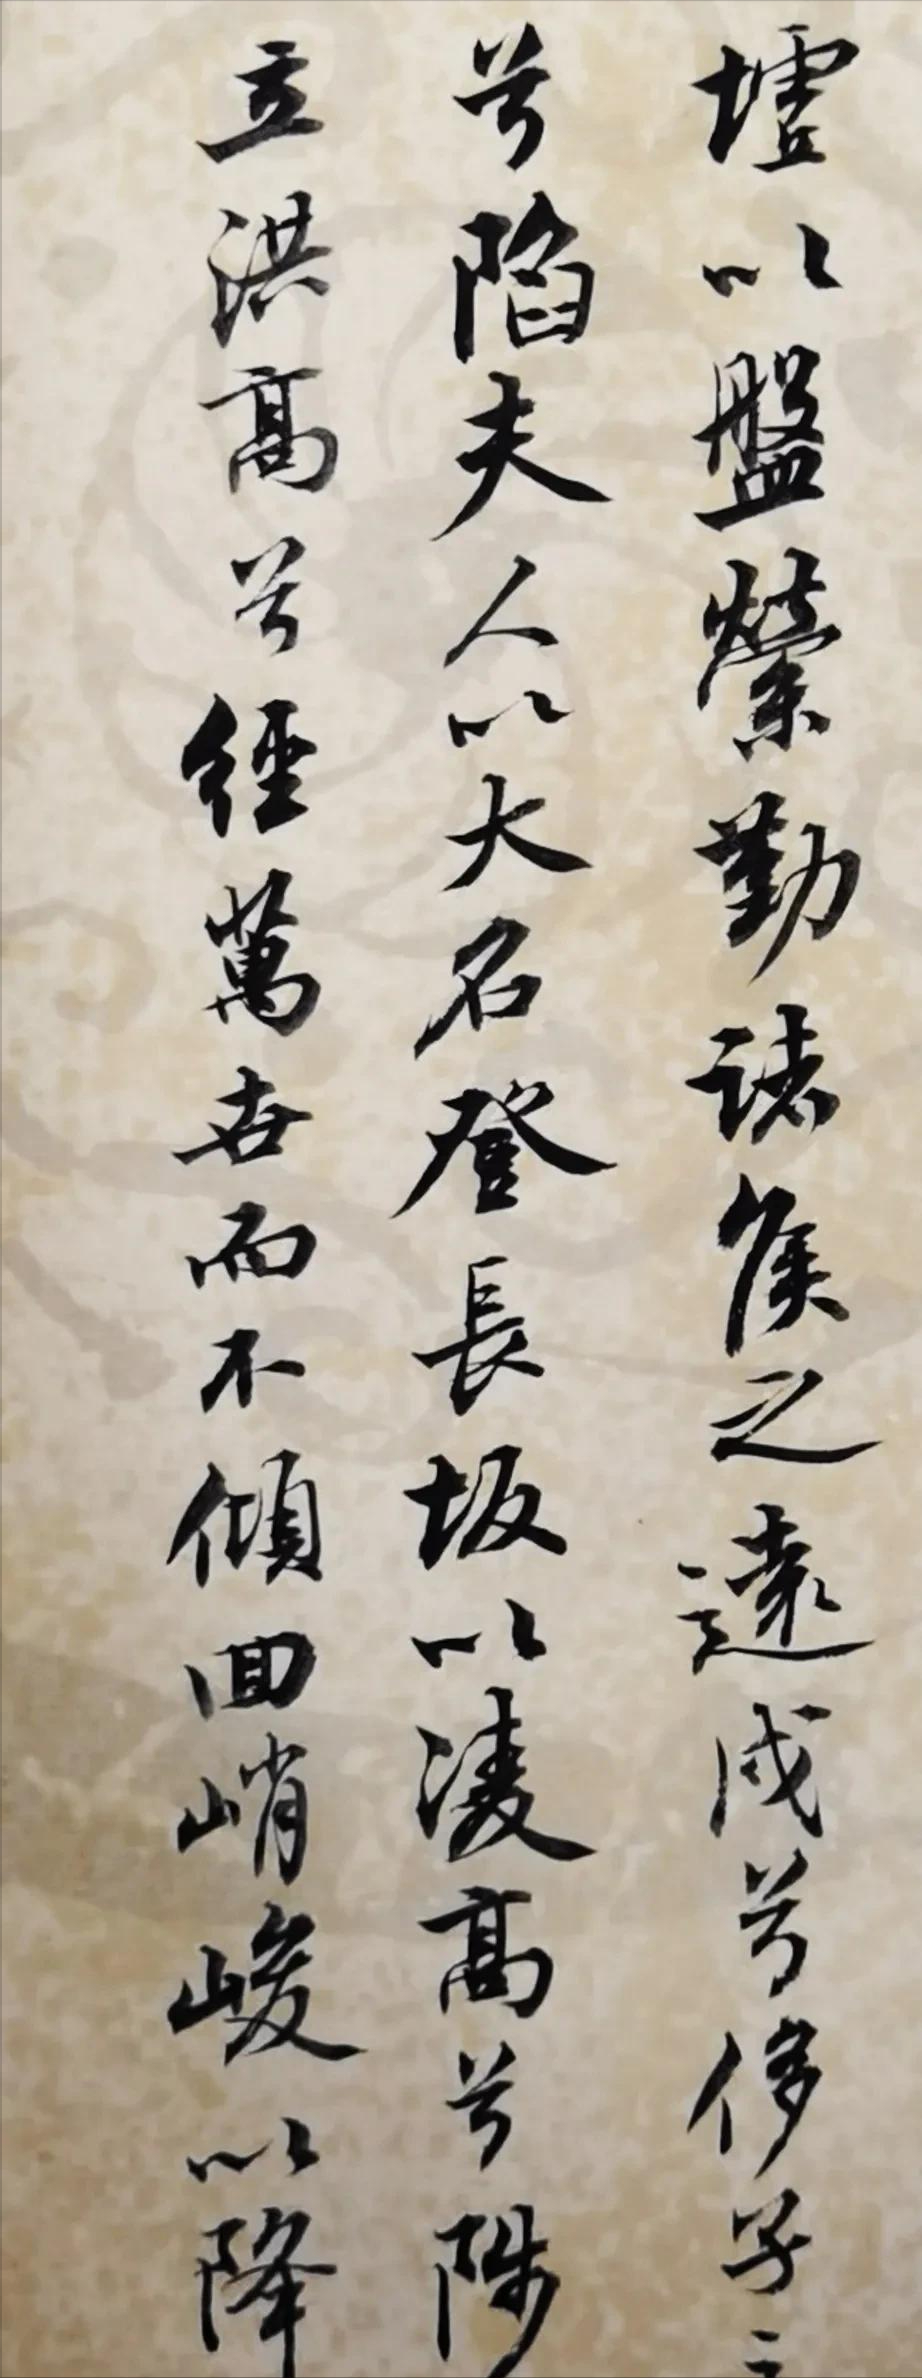 墟以盤縈勤諸侯之遠戍兮侈子
兮陷夫人以大名登長坂以淩高兮陟
立洪高兮經萬世而不傾回峭峻以降